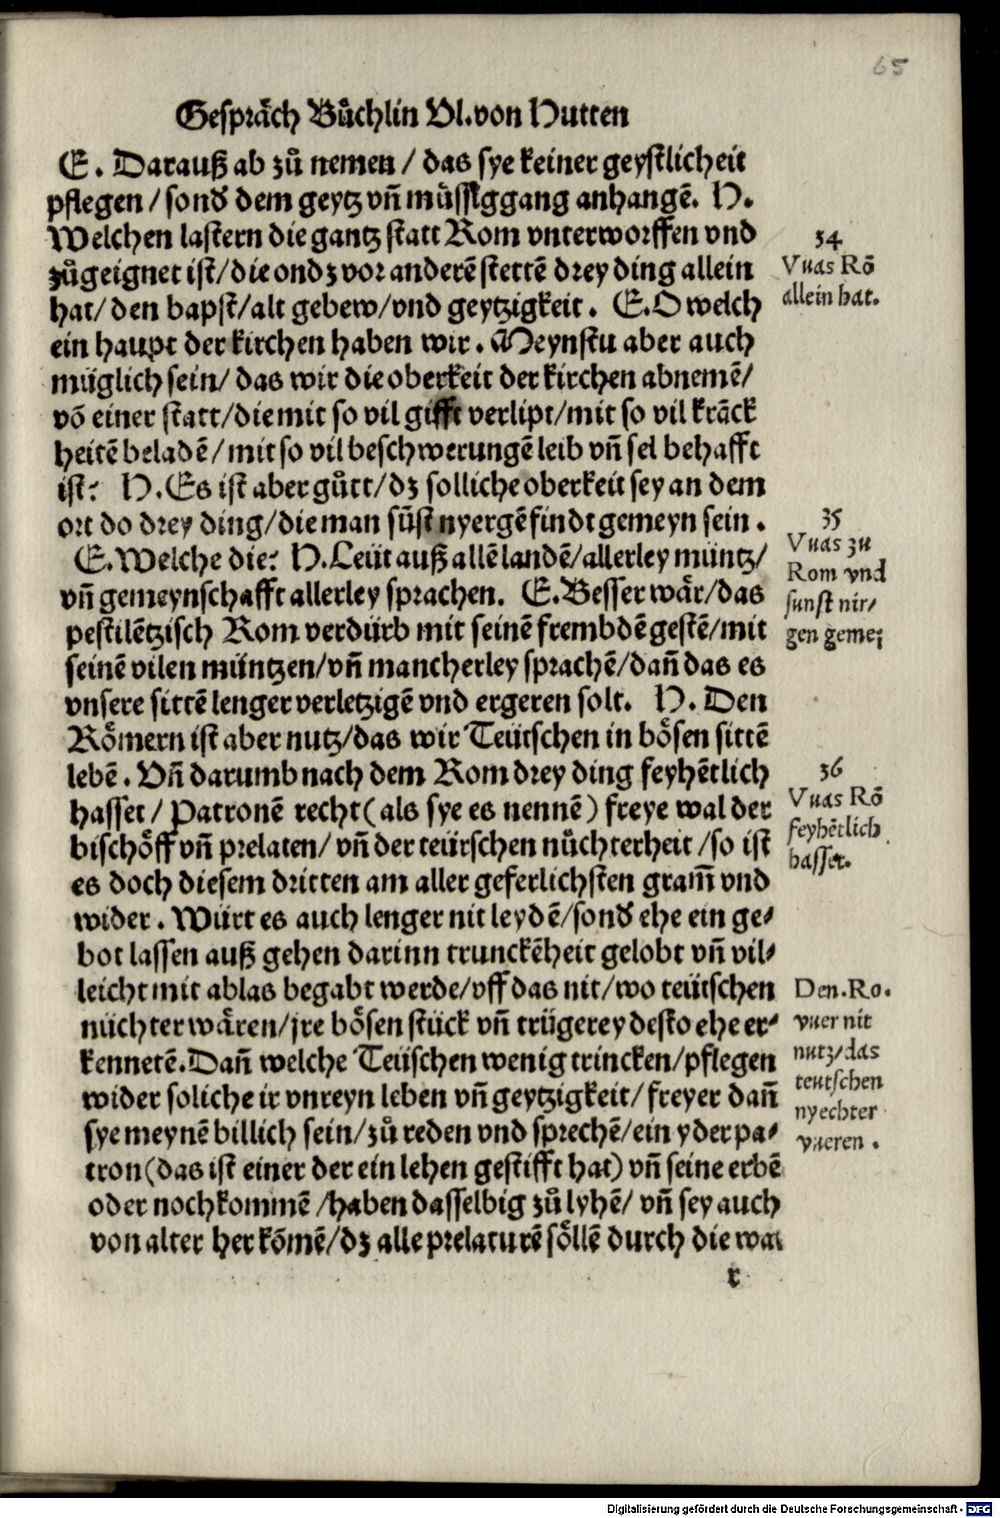 65
Gespräch Bůchlin Vl. von Hutten
E. Darauß ab zů nemen / das sye keiner geystlicheit
pflegen / sond̛ dem geytz vñ müssiggang anhangē. H.
Welchen lastern die gantz statt Rom vnterworffen vnd
zůgeignet ist / die ondz vor anderē stettē drey ding allein
hat / den bapst / alt gebew / vnd geytzigkeit. E. O welch
ein haupt der kirchen haben wir. Meynstu aber auch
müglich sein / das wir die oberkeit der kirchen abnemē /
võ einer statt / die mit so vil gifft verlipt / mit so vil krãck
heitē beladē / mit so vil beschwerungē leib vñ sel behafft
ist? H. Es ist aber gůtt / dz solliche oberkeit sey an dem
ort do drey ding / die man süst nyergē findt gemeyn sein.
E. Welche die? H. Leüt auß allē landē / allerley müntz /
vñ gemeynschafft allerley sprachen. E. Besser wär / das
pestilētzisch Rom verdürb mit seinē frembdē gestē / mit
seinē vilen müntzen / vñ mancherley sprachē / dañ das es
vnsere sittē lenger verletzigē vnd ergeren solt. H. Den
Römern ist aber nutz / das wir Teütschen in bösen sittē
lebē. Vñ darumb nach dem Rom drey ding feyhētlich
hasset / Patronē recht ( als sye es nennē ) freye wal der
bischöff vñ prelaten / vñ der teütschen nüchterheit / so ist
es doch diesem dritten am aller geferlichsten gram̄ vnd
wider. Würt es auch lenger nit leydē / sond̛ ehe ein ge⸗
bot lassen auß gehen darinn trunckēheit gelobt vñ vil⸗
leicht mit ablas begabt werde / vff das nit / wo teütschen
nüchter wären / jre bösen stück vñ trügerey desto ehe er⸗
kennetē. Dañ welche Teüschen wenig trincken / pflegen
wider soliche ir vnreyn leben vñ geytzigkeit / freyer dañ
sye meynē billich sein / zů reden vnd sprechē / ein yder pa⸗
tron ( das ist einer der ein lehen gestifft hat ) vñ seine erbē
oder nochkommē / haben dasselbig zů lyhē / vñ sey auch
von alter her kõmē / dz alle prelaturē söllē durch die wal
r
34
Vuas Rõ
allein hat.
35
Vuas zu
Rom vnd
sunst nir⸗
gen geme;
36
Vuas Rõ
feyhētlich
hasset.
Den. Ro.
vuer nit
nutz / das
teutschen
nyechter
vueren.
Digitalisierung gefördert durch die Deutsche Forschungsgemeinschaft - DFG